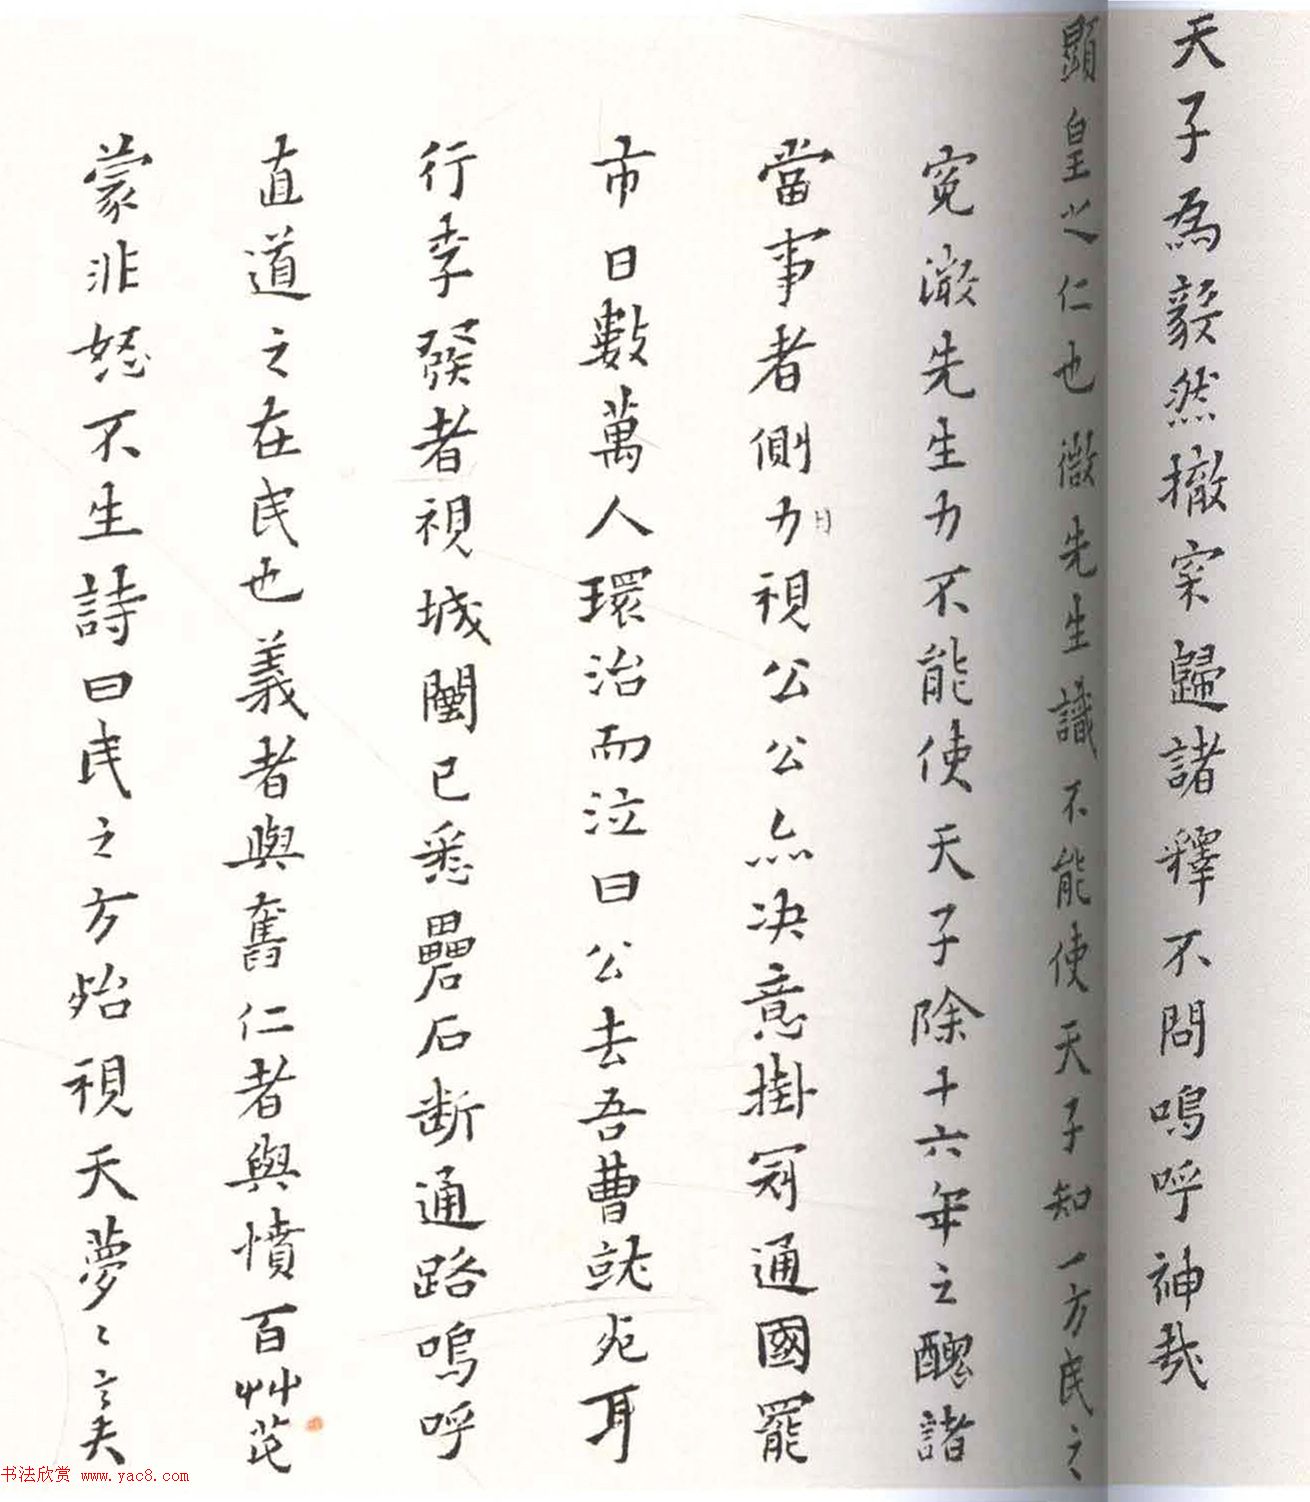 天子為毅然撤宷歸諸釋不問嗚呼神哉
顯皇之仁也微先生識不能使天子知一方民之
冤激先生力不能使天子除十六年之醜諸
當事者側力視公公亦決意掛冠通國罷
目
市日數萬人環治而泣曰公去吾曹就死耳
行李發者視城闉已悉罍石斷通路嗚呼
直道之在民也義者與奮仁者與憤百艸芘
蒙非怒不生詩曰民之方殆視天夢〻言夫
书法欣赏 www.yac8.com